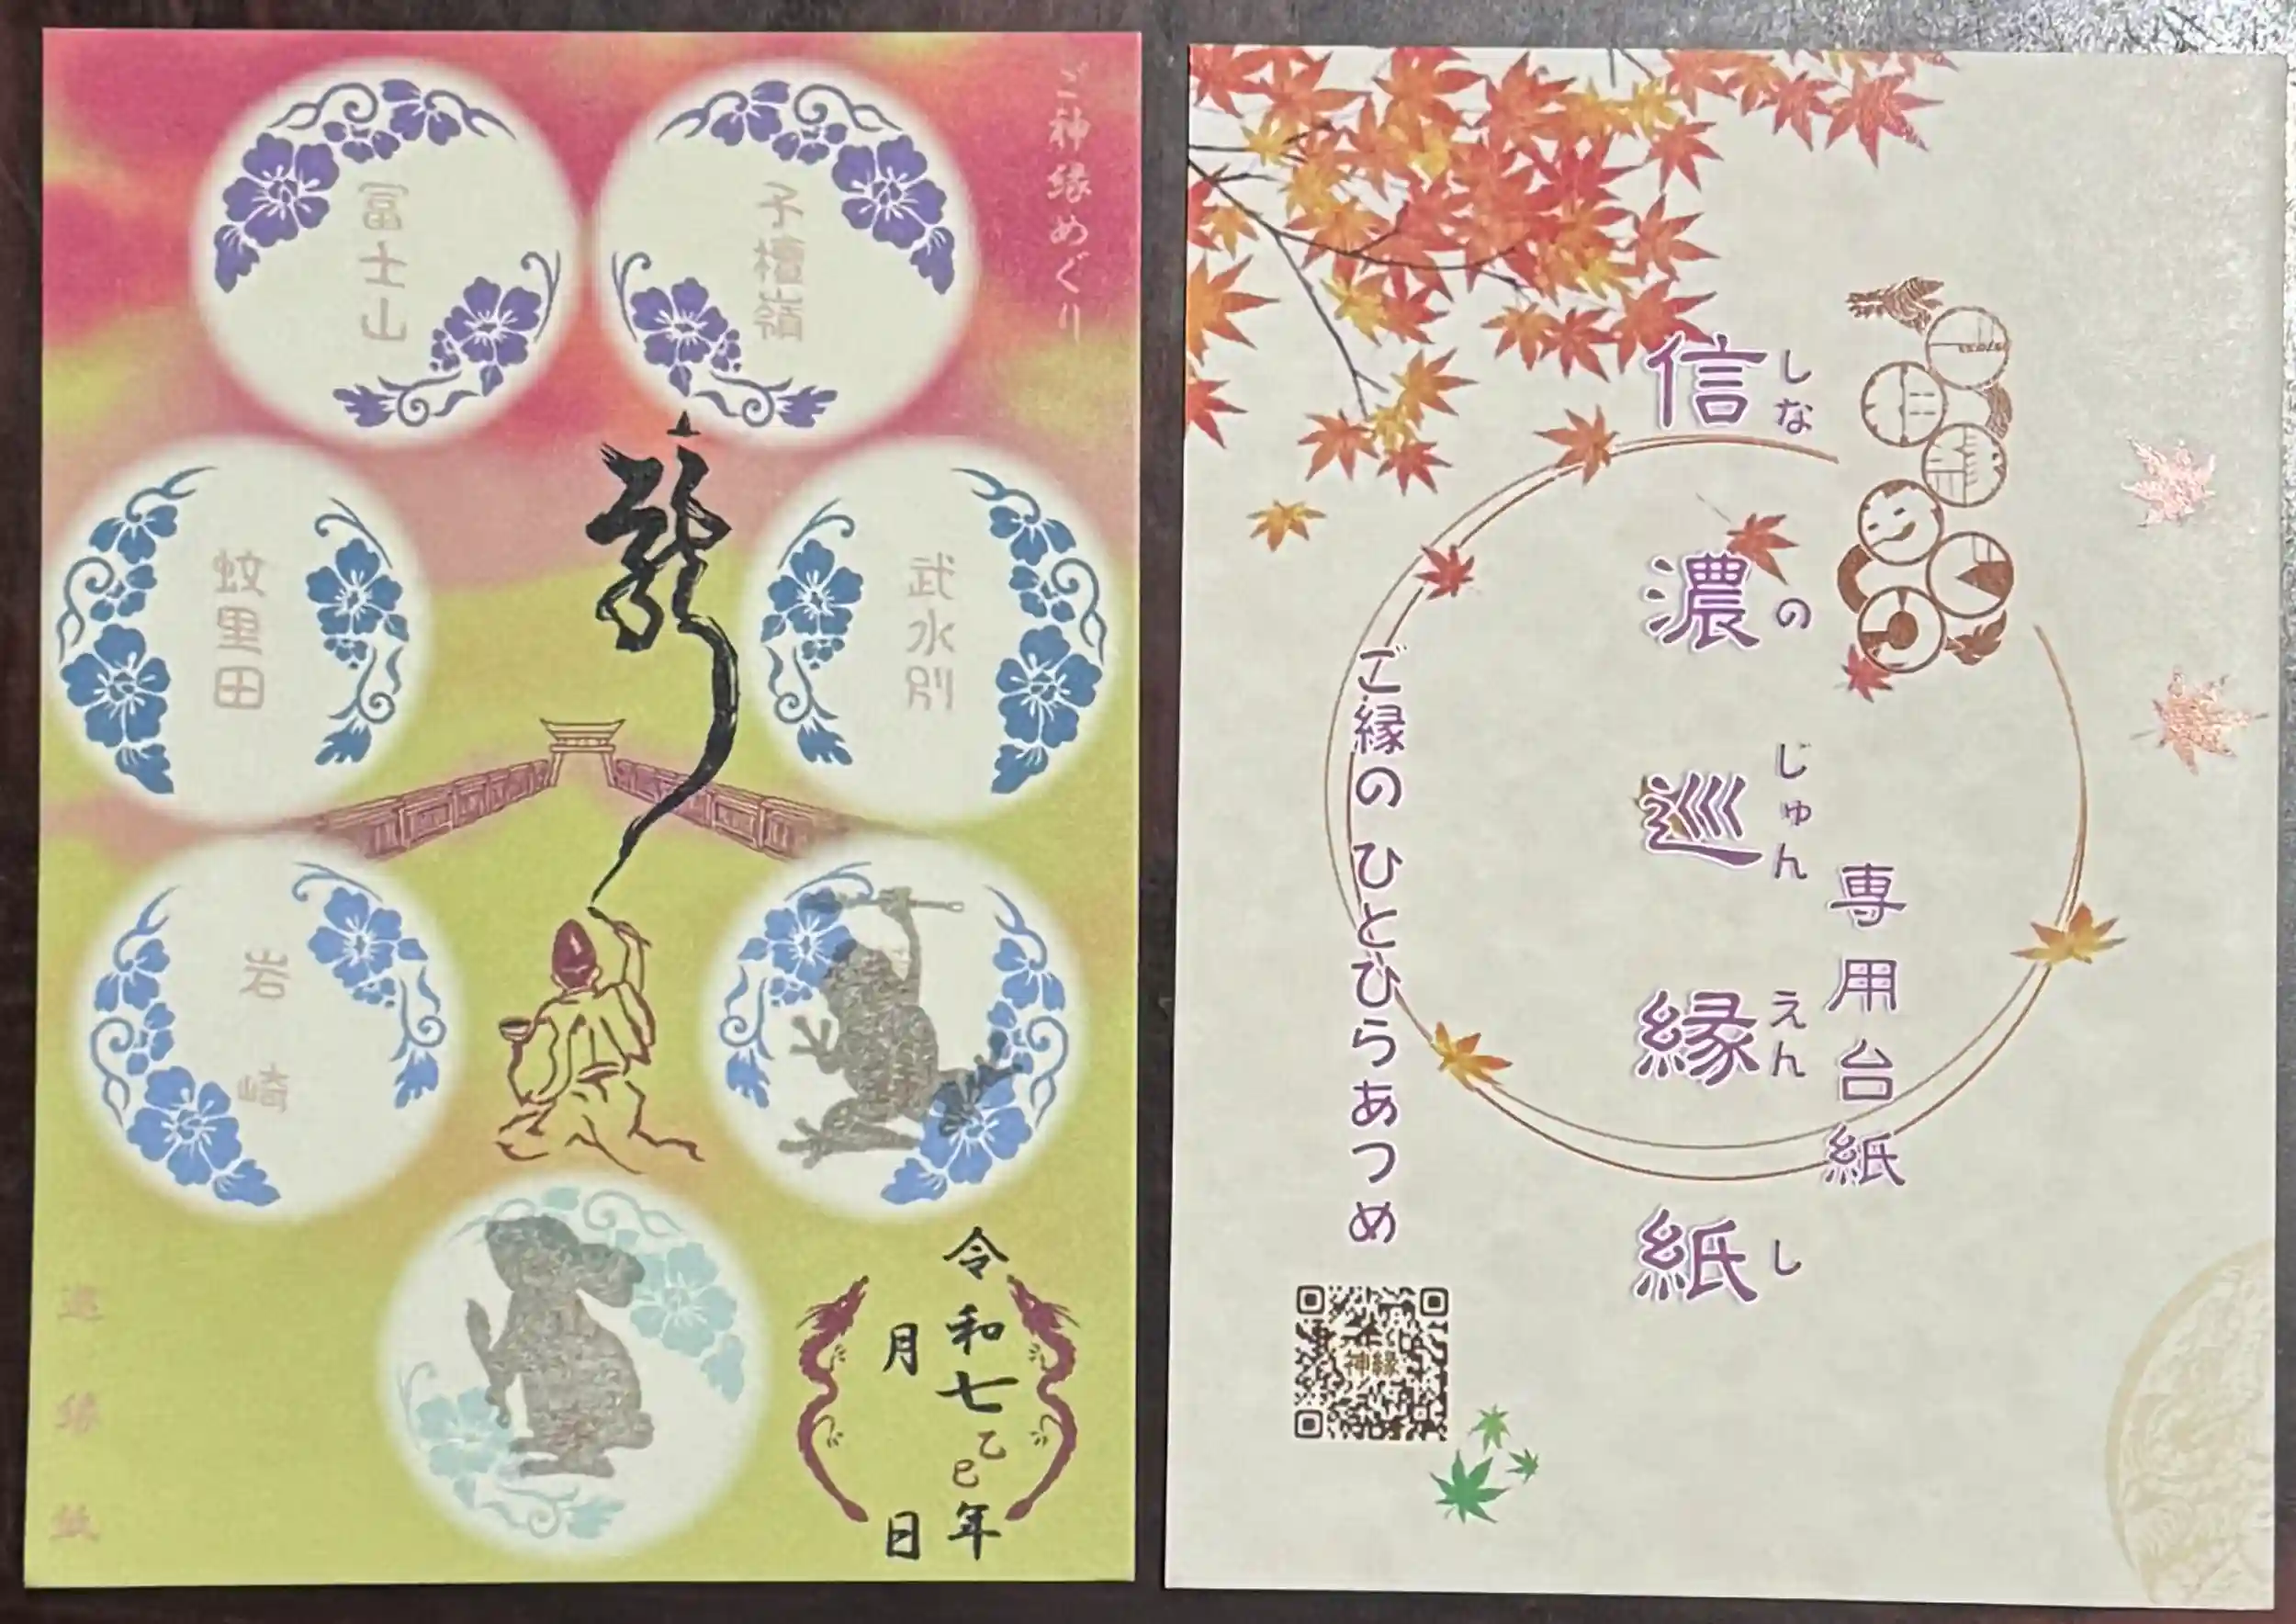 ご神縁めぐり
子檀嶺
冨士山
武水別
蚊里田
龍
岩崎
令和七乙巳年
月日
巡縁紙
専用台紙
信濃巡縁紙
しなのじゅんえんし
ご縁の ひとひらあつめ
神縁